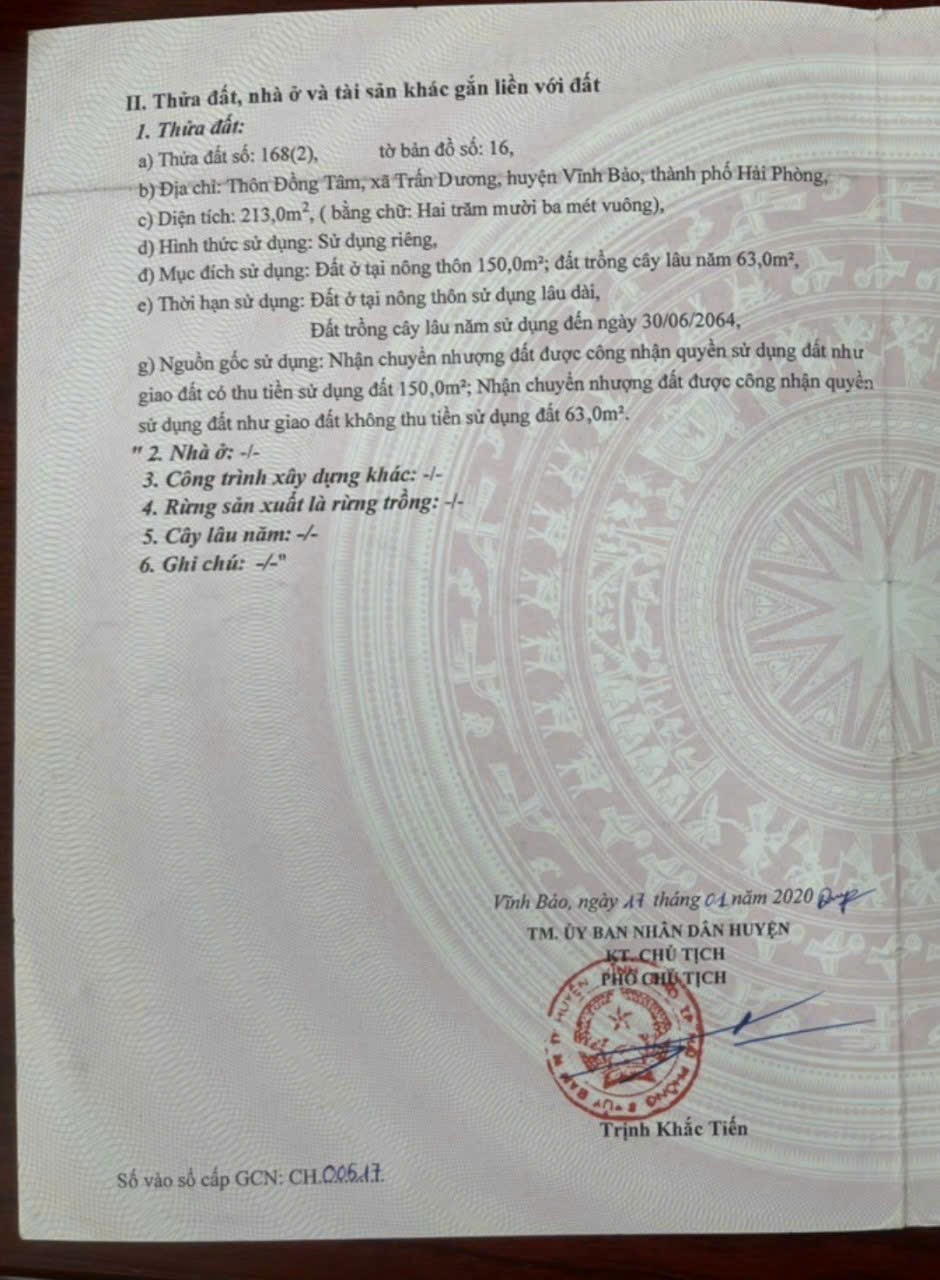 II. Thửa đất, nhà ở và tài sản khác gắn liền với đất
1. Thửa đất:
a) Thửa đất số: 168(2), tờ bản đồ số: 16,
b) Địa chỉ: Thôn Đồng Tâm, xã Trấn Dương, huyện Vĩnh Bảo, thành phố Hải Phòng,
c) Diện tích: 213,0m², ( bằng chữ: Hai trăm mười ba mét vuông),
d) Hình thức sử dụng: Sử dụng riêng,
đ) Mục đích sử dụng: Đất ở tại nông thôn 150,0m²; đất trồng cây lâu năm 63,0m²,
e) Thời hạn sử dụng: Đất ở tại nông thôn sử dụng lâu dài,
Đất trồng cây lâu năm sử dụng đến ngày 30/06/2064,
g) Nguồn gốc sử dụng: Nhận chuyển nhượng đất được công nhận quyền sử dụng đất như
giao đất có thu tiền sử dụng đất 150,0m²; Nhận chuyển nhượng đất được công nhận quyền
sử dụng đất như giao đất không thu tiền sử dụng đất 63,0m².
" 2. Nhà ở: -/-
3. Công trình xây dựng khác: -/-
4. Rừng sản xuất là rừng trồng: -/-
5. Cây lâu năm: -/-
6. Ghi chú: -/-"
Vĩnh Bảo, ngày 17 tháng 01 năm 2020
TM. ỦY BAN NHÂN DÂN HUYỆN
KT. CHỦ TỊCH
PHÓ CHỦ TỊCH
Trịnh Khắc Tiến
Số vào sổ cấp GCN: CH.00517.